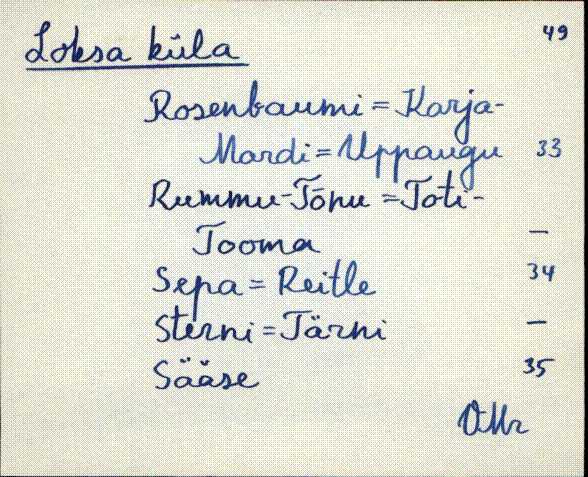 49
Loksa küla
Rosenbaumi = Karja-
Mardi = Uppaugu 33
Rummu-Tõnu = Toti-
Tooma —
Sepa = Reitle 34
Sterni = Tärni —
Sääse 35